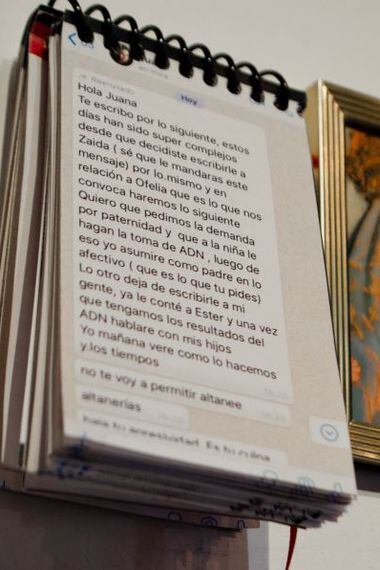 Reenviado
Hoy
Hola Juana
Te escribo por lo siguiente, estos
días han sido super complejos
desde que decidiste escribirle a
Zaida ( sé que le mandaras este
mensaje) por lo.mismo y en
relación a Ofelia que es lo que nos
convoca haremos lo siguiente
Quiero que pedimos la demanda
por paternidad y que a la niña le
hagan la toma de ADN , luego de
eso yo asumire como padre en lo
afectivo ( que es lo que tu pides)
Lo otro deja de escribirle a mi
gente, ya le conté a Ester y una vez
que tengamos los resultados del
ADN hablare con mis hijos
Yo mañana vere como lo hacemos
y.los tiempos
no te voy a permitir altanee
altanerías
baja tu agresividad. Es tu culpa